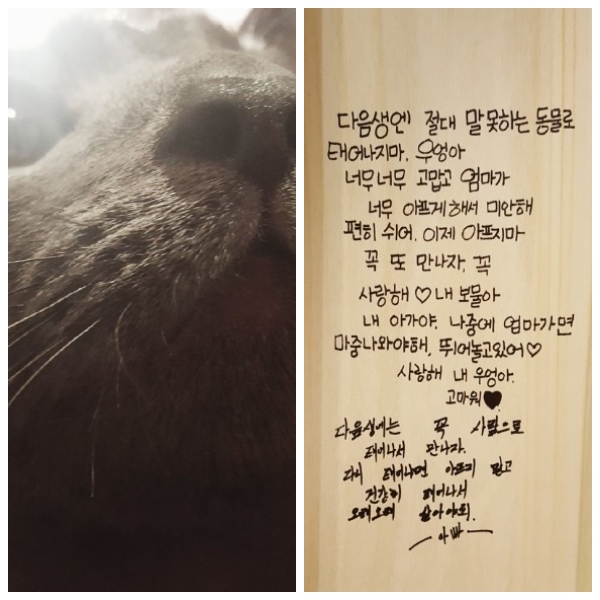 다음생엔 절대 말못하는 동물로
태어나지마. 우엉아
너무너무 고맙고 엄마가
너무 아프게해서 미안해
편히 쉬어. 이제 아프지마
꼭 또 만나자, 꼭
사랑해 ♡ 내 보물아
내 아가야. 나중에 엄마가면
마중나와야해, 뛰어놀고있어♡
사랑해 내 우엉아.
고마워♥
다음생에는 꼭 사람으로
태어나서 만나자.
다시 태어나면 아프지 말고
건강히 태어나서
오래오래 살아야해.
- 아빠 -